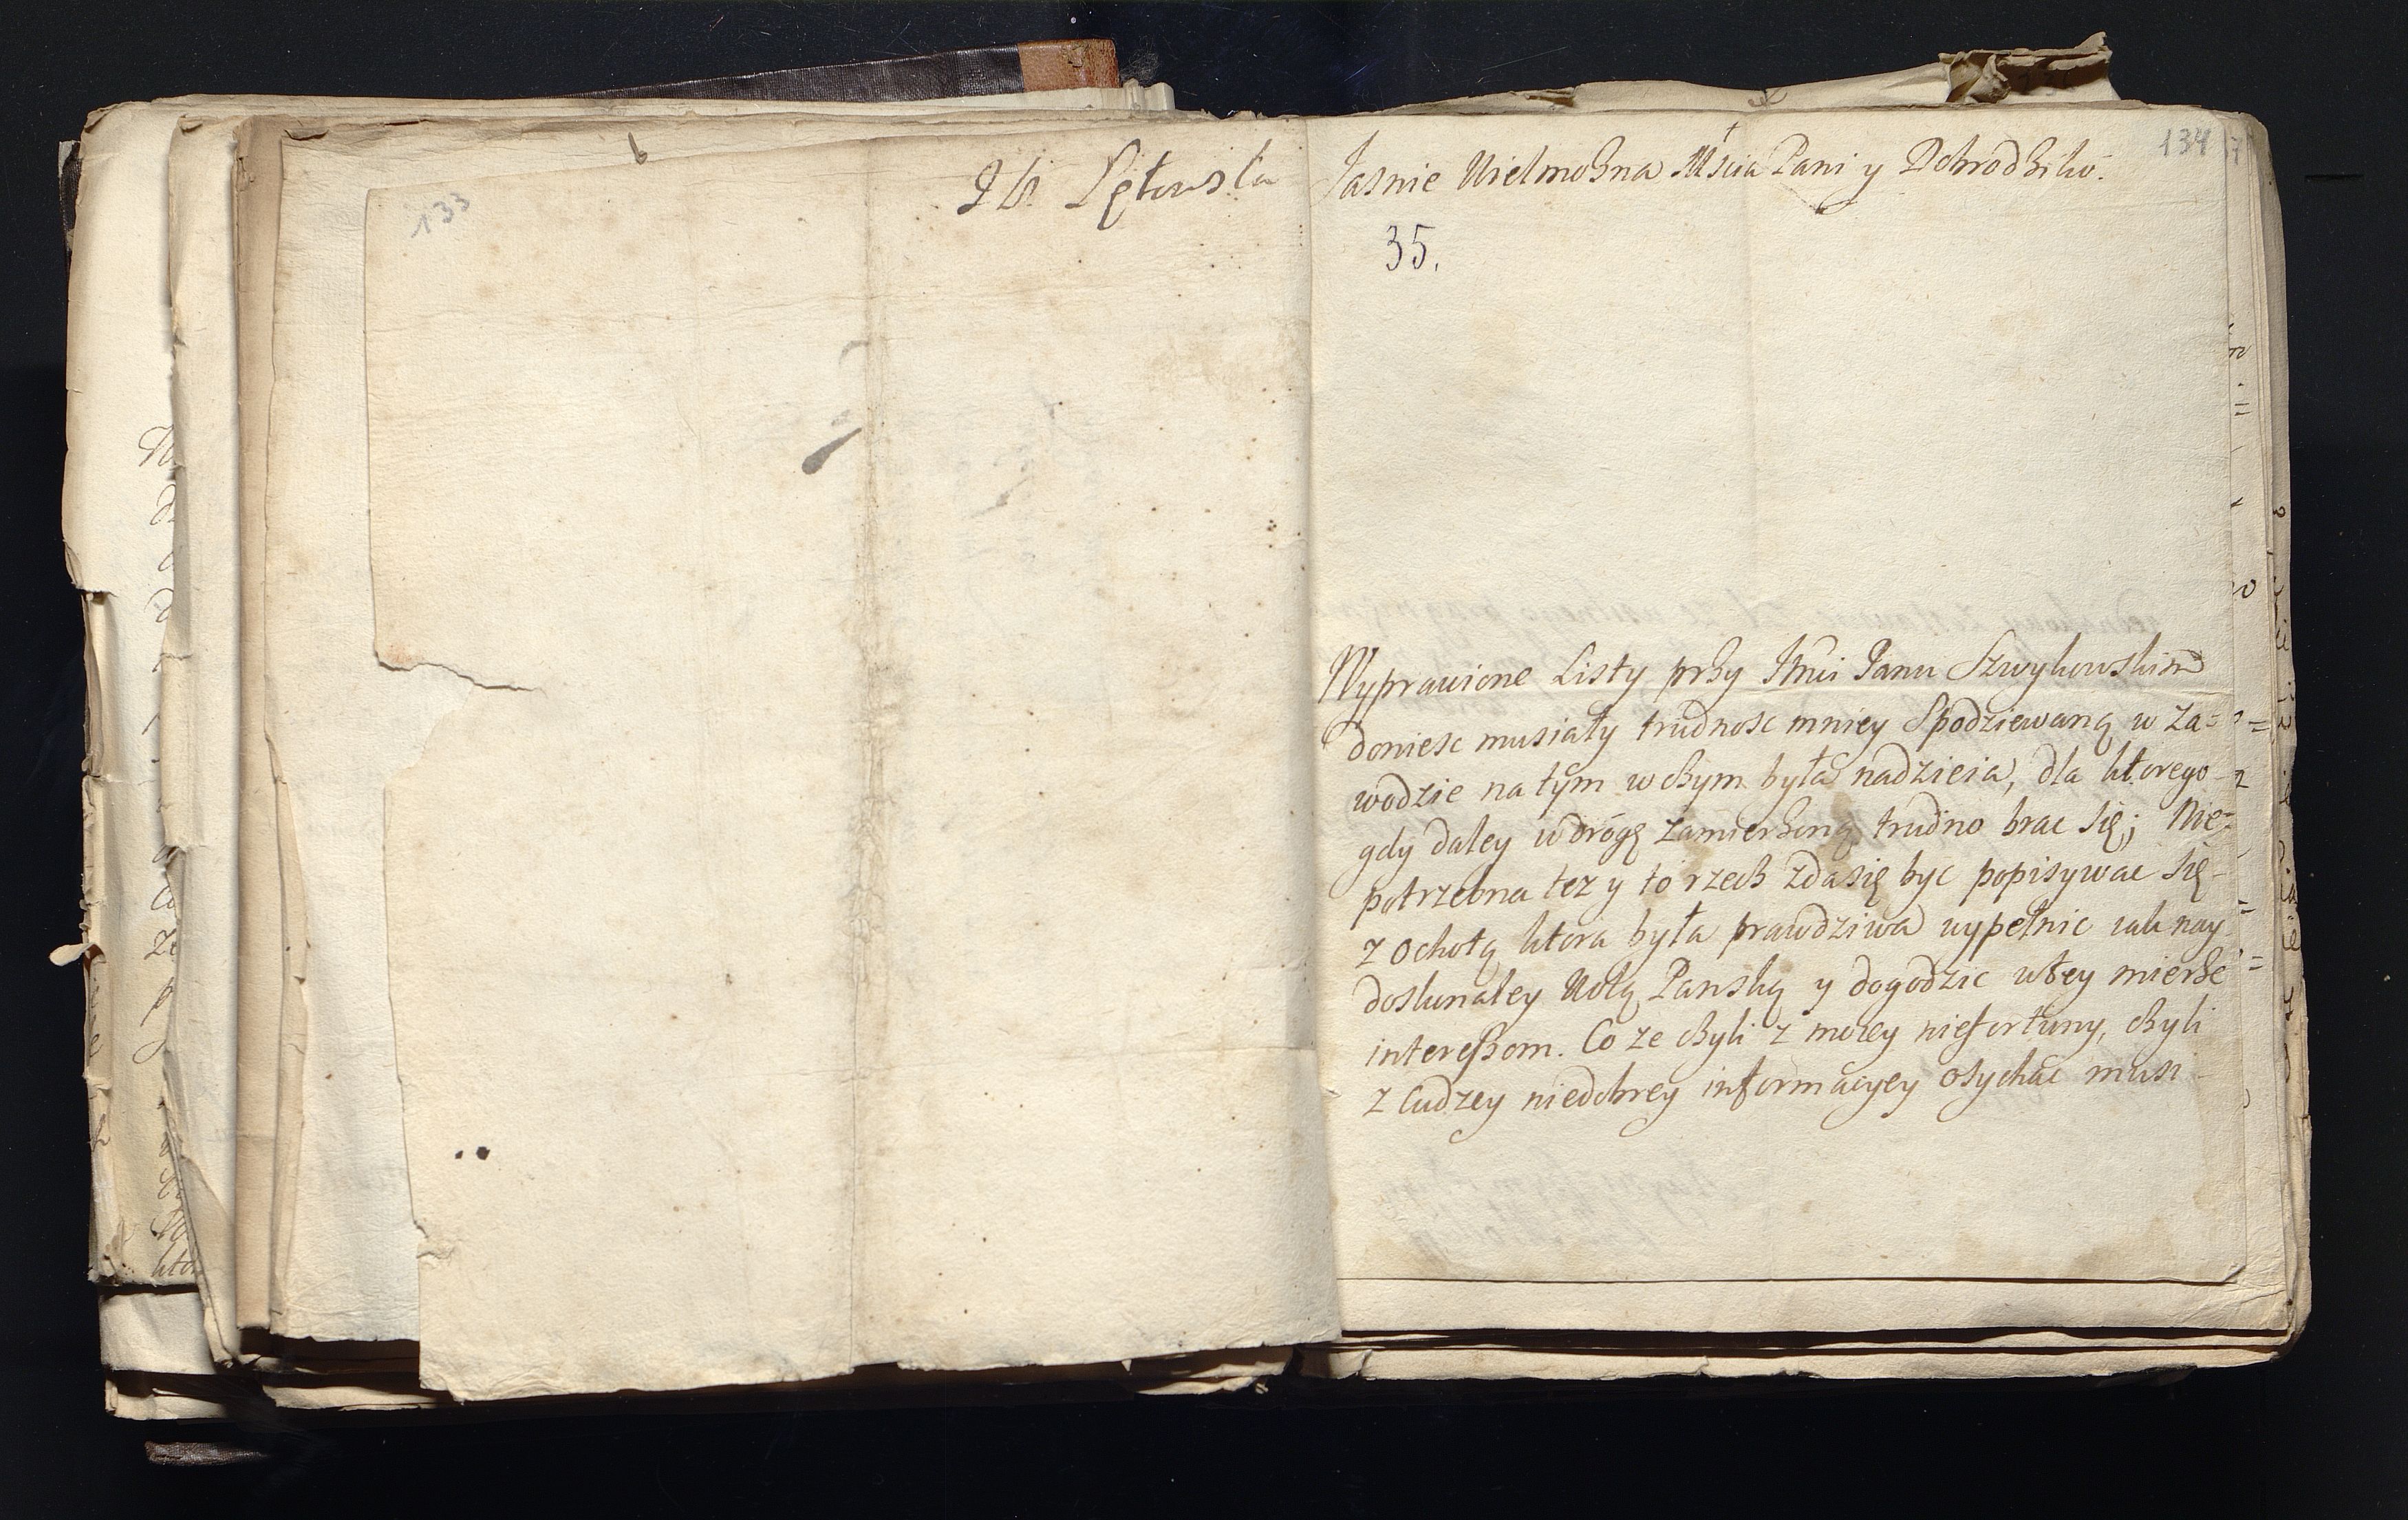 133
Łętowska
134
Jasnie Wielmozna Mścia Pani y Dobrodziko.
35.
Wyprawione Listy przy Jmći Panu Szwykowskim
doniesc musiały trudnosc mniey Spodziewaną w za=
wodzie na tym w czym była nadzieia, dla ktorego
gdy daley w drogę zamierzoną trudno brac się; Nie=
potrzebna tez y to rzecz zda się byc popisywac się
z ochotą ktora była prawdziwa wypełnic iak nay
doskonaley Wolą Panską y dogodzic w tey mierze
interessom. Co ze czyli z moiey niefortuny, czyli
z Cudzey niedobrey informacyey osychac musi